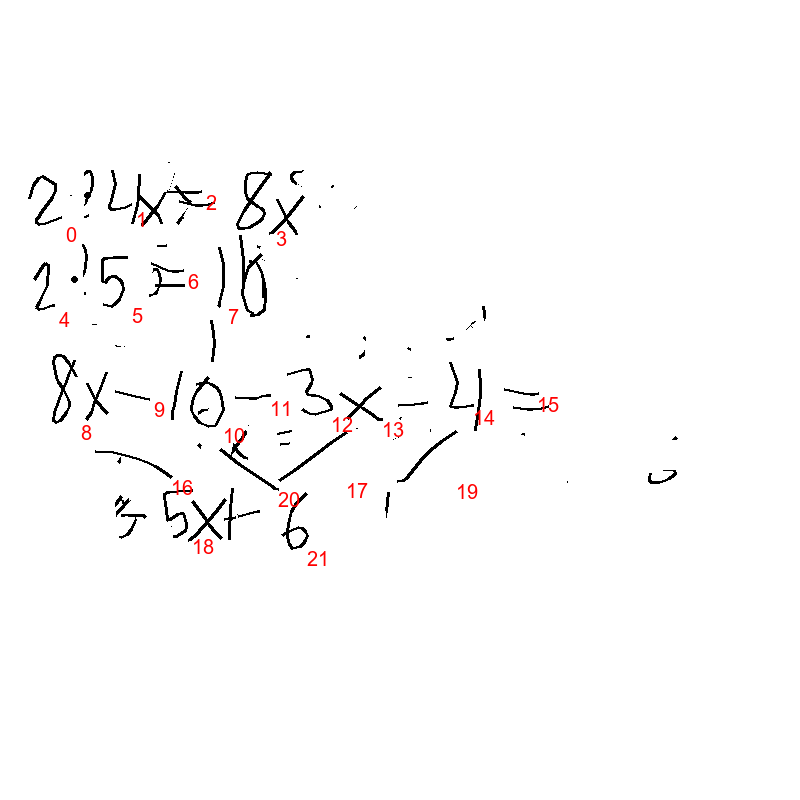 2 · 4x = 8x
0 1 2 3
2 · 5 = 10
4 5 6 7
8x - 10 - 3x - 4 =
8 9 10 11 12 13 14 15
16 20 17 19
= 5x + 6
18 21